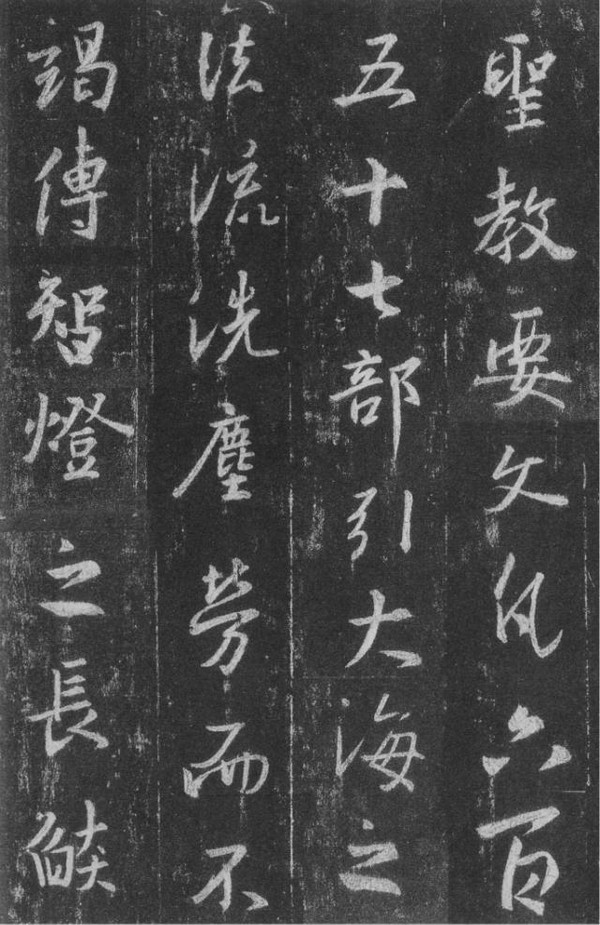 聖教要文凡六百
五十七部引大海之
法流洗塵勞而不
竭傳智燈之長𦦨